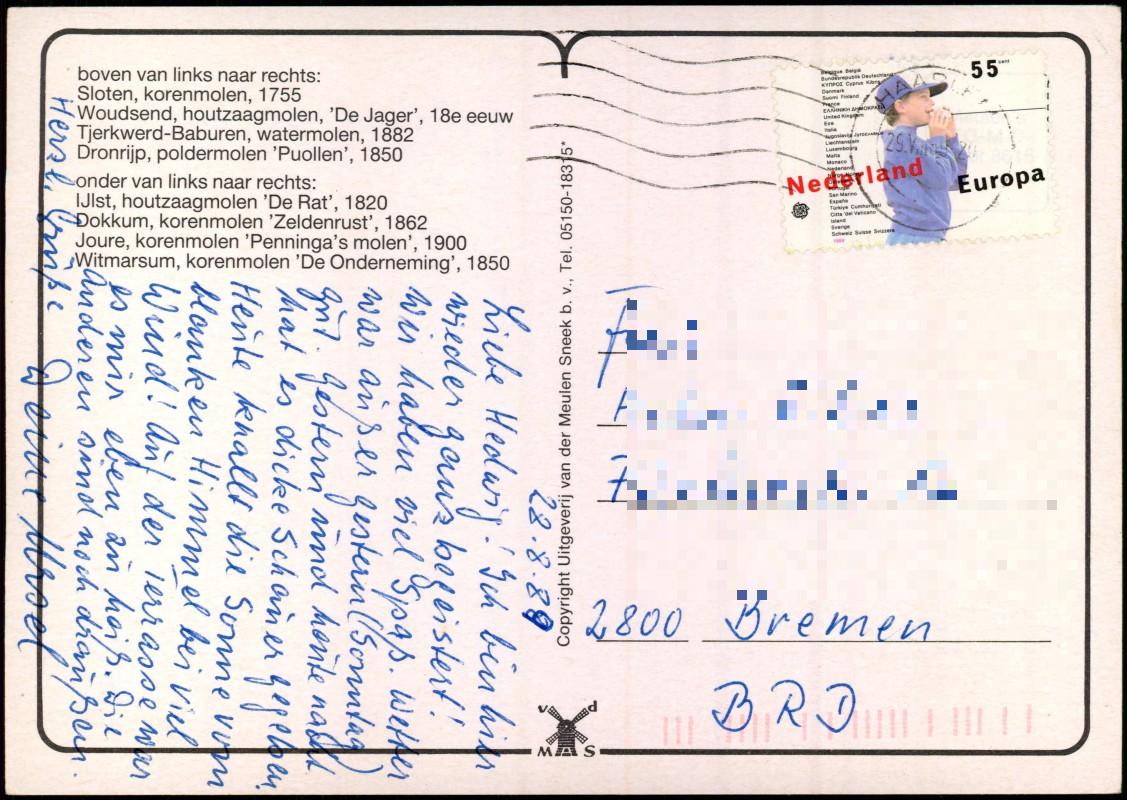 boven van links naar rechts:
Sloten, korenmolen, 1755
Woudsend, houtzaagmolen, 'De Jager', 18e eeuw
Tjerkwerd-Baburen, watermolen, 1882
Dronrijp, poldermolen 'Puollen', 1850
onder van links naar rechts:
IJlst, houtzaagmolen 'De Rat', 1820
Dokkum, korenmolen 'Zeldenrust', 1862
Joure, korenmolen 'Penninga's molen', 1900
Witmarsum, korenmolen 'De Onderneming', 1850
28.8.89
Liebe Hedwig! Ich bin hier
wieder ganz begeistert!
Wir haben viel Spaß. Wetter
war außer gestern (Sonntag)
gut. Gestern und heute nacht
hat es dicke Schauer gegeben
Heute knallt die Sonne vom
blanken Himmel bei viel
Wind! Auf der Terrasse war
es mir eben zu heiß. Die
Anderen sind noch draußen.
Herzl. Grüße
Deine
Copyright Uitgeverij van der Meulen Sneek b. v., Tel. 05150-18315*
v d
M S
55 cent
Belgique België
Bundesrepublik Deutschland
ΚΥΠΡΟΣ Cyprus Kibris
Danmark
Suomi Finland
France
ΕΛΛΗΝΙΚΗ ΔΗΜΟΚΡΑΤΙΑ
United Kingdom
Eire
Italia
Liechtenstein
Luxembourg
Malta
Monaco
Nederland
San Marino
España
Türkiye Cumhuriyeti
Citta 'del Vaticano
Island
Sverige
Schweiz Suisse Svizzera
1989
Nederland
Europa
2800 Bremen
BRD